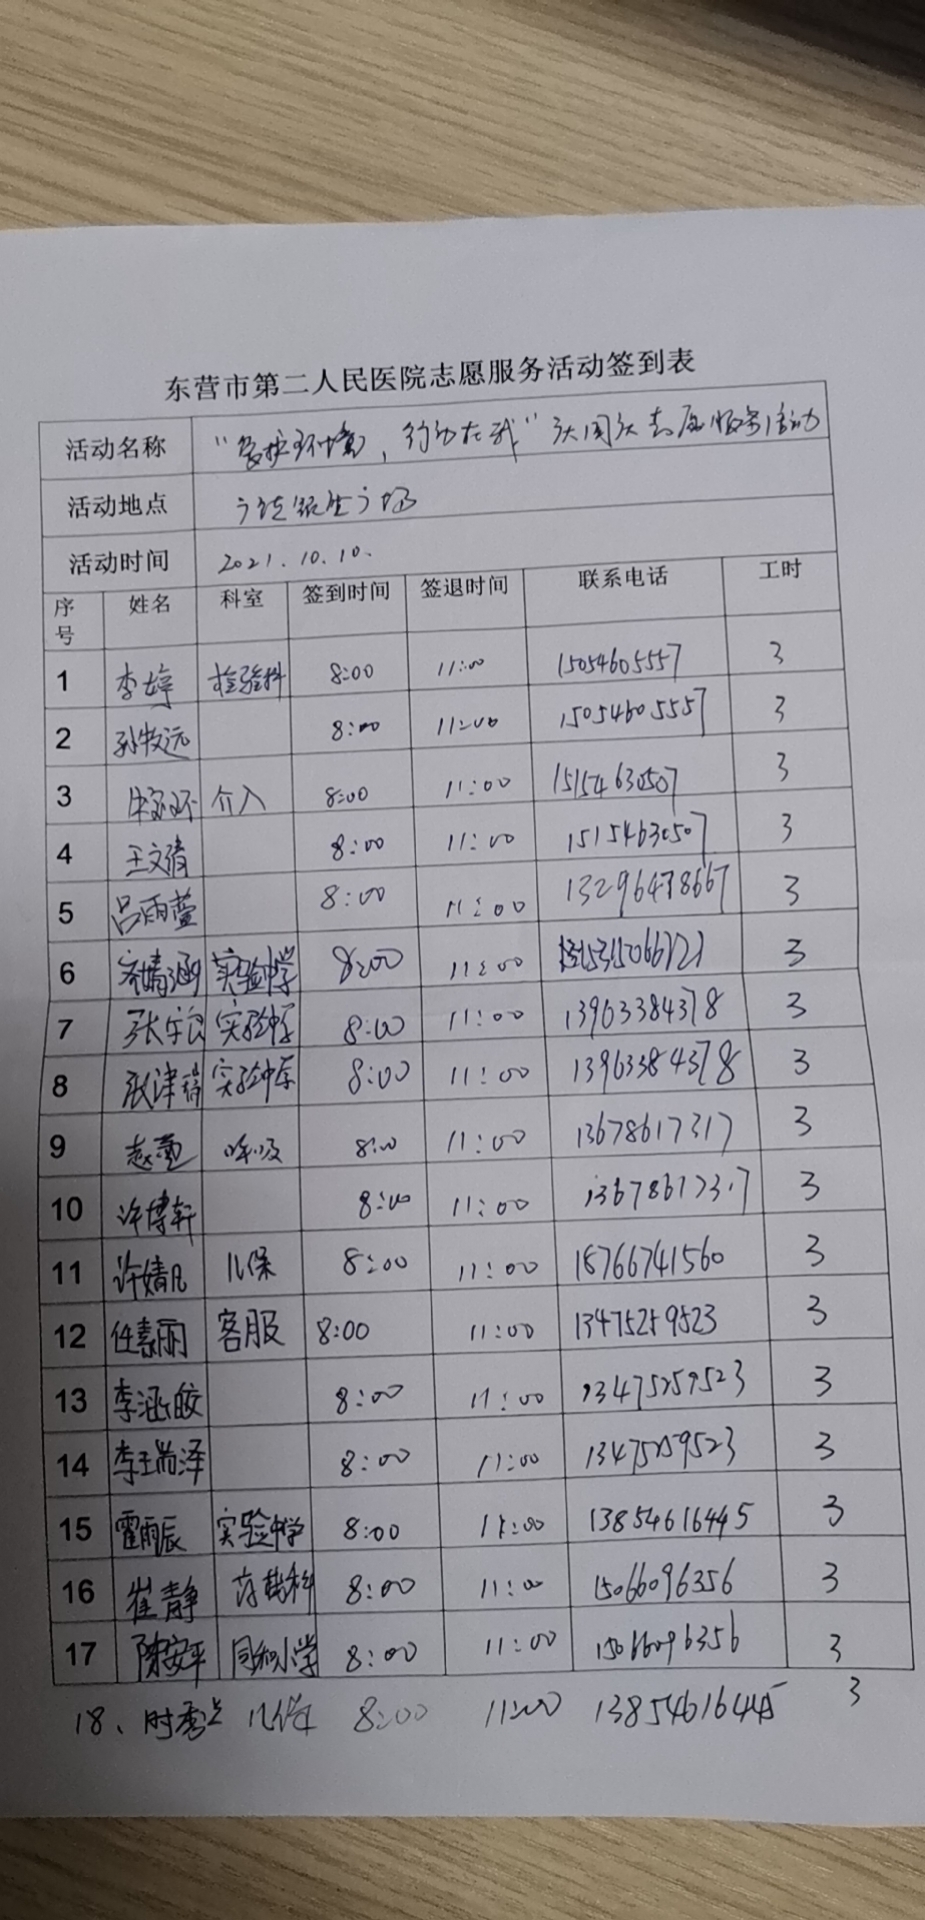 东营市第二人民医院志愿服务活动签到表
活动名称 "爱护环境，行动在我"志愿服务活动
活动地点 广场
活动时间 2021.10.10.
序号 姓名 科室 签到时间 签退时间 联系电话 工时
1 李婷 检验科 8:00 11:00 15054605557 3
2 孙牧远 8:00 11:00 15054605557 3
3 介入 8:00 11:00 15154630507 3
4 王文清 8:00 11:00 15154630507 3
5 吕雨萱 8:00 11:00 13296478667 3
6 齐婧涵 实验中学 8:00 11:00 3
7 张宇 实验中学 8:00 11:00 13963384378 3
8 张津瑞 实验中学 8:00 11:00 13963384378 3
9 赵萱 呼吸 8:00 11:00 13678617317 3
10 许博轩 8:00 11:00 13678617317 3
11 许婧凡 儿保 8:00 11:00 18766741560 3
12 任素丽 客服 8:00 11:00 13475259523 3
13 李涵皎 8:00 11:00 13475259523 3
14 李王瑞泽 8:00 11:00 13475259523 3
15 霍雨辰 实验中学 8:00 11:00 13854616445 3
16 崔静 8:00 11:00 15066096356 3
17 陈安平 同和小学 8:00 11:00 15066096356 3
18、时秀 儿保 8:00 11:00 13854616445 3